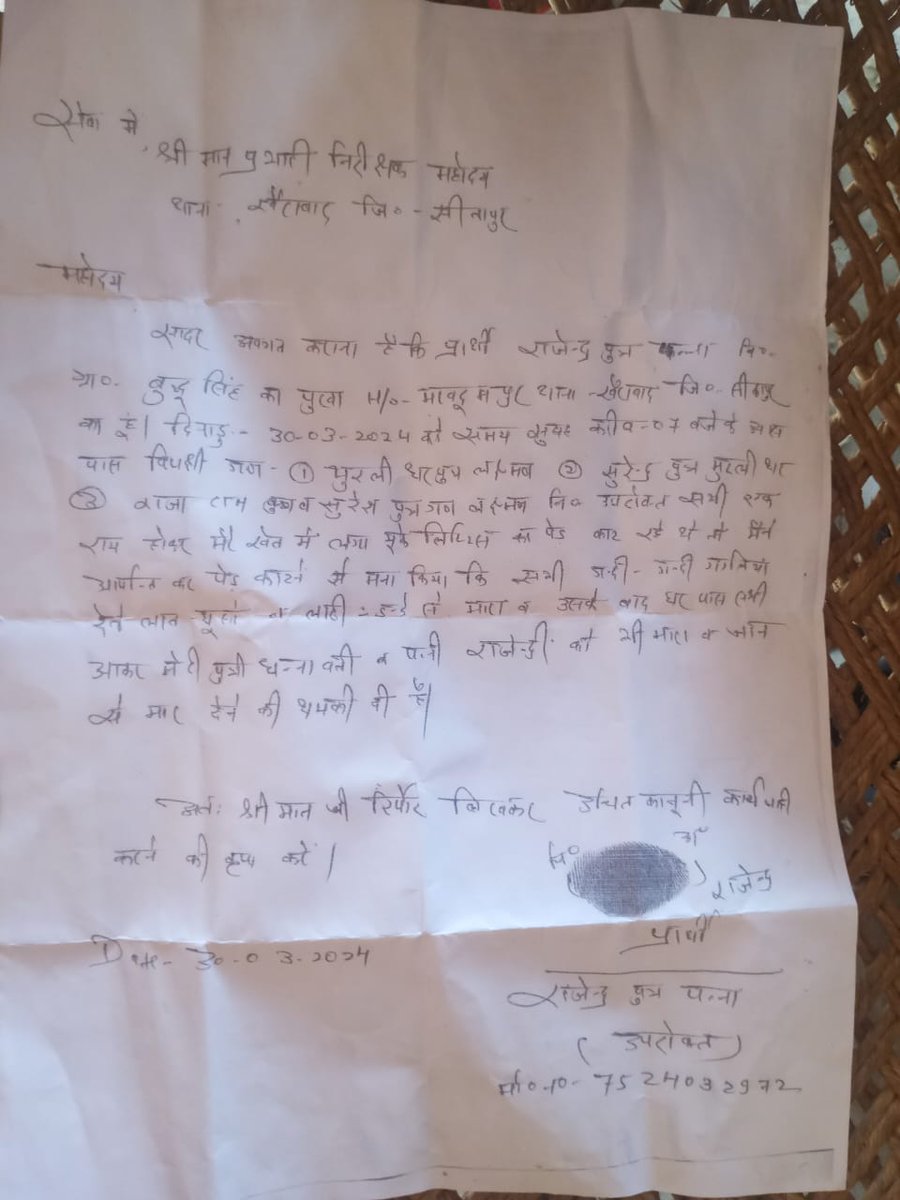 सेवा में
श्री मान प्रभारी निरीक्षक महोदय
थाना- खैराबाद जि०- सीतापुर
महोदय
सादर अवगत कराना है कि प्रार्थी राजेन्द्र पुत्र पन्ना नि०
ग्रा०. बुद्ध सिंह का पुरवा थाना - खैराबाद जि० सीतापुर
का हूँ। दिनांक - 30-03-2024 को समय सुबह करीब - 07 बजे के आस
पास विपक्षी गण - ① मुरली धर पुत्र लक्ष्मन ② सुरेन्द्र पुत्र मुरली धर
③ राजा राम व सुरेश पुत्र गण लक्ष्मन नि० उपरोक्त सभी एक
राय होकर मेरे खेत में लगा यूके लिप्टिस का पेड काट रहे थे मैंने
कर पेड़ काटने से मना किया कि सभी गन्दी - गन्दी गालियां
देते लात घूसो व लाठी - डन्डे से मारा व उसके बाद घर पास सभी
आकर मेरी पुत्री धन्ना वती व पत्नी राजेन्द्री को भी मारा व जान
से मार देने की धमकी दी है।
अतः श्री मान जी रिर्पोट लिखकर उचित कानूनी कार्यवाही
करने की कृपा करें।
नि० अं०
राजेन्द्र
प्रार्थी
Date - 30-03-2024
राजेन्द्र पुत्र पन्ना
( उपरोक्त )
मो० न० - 7524032972